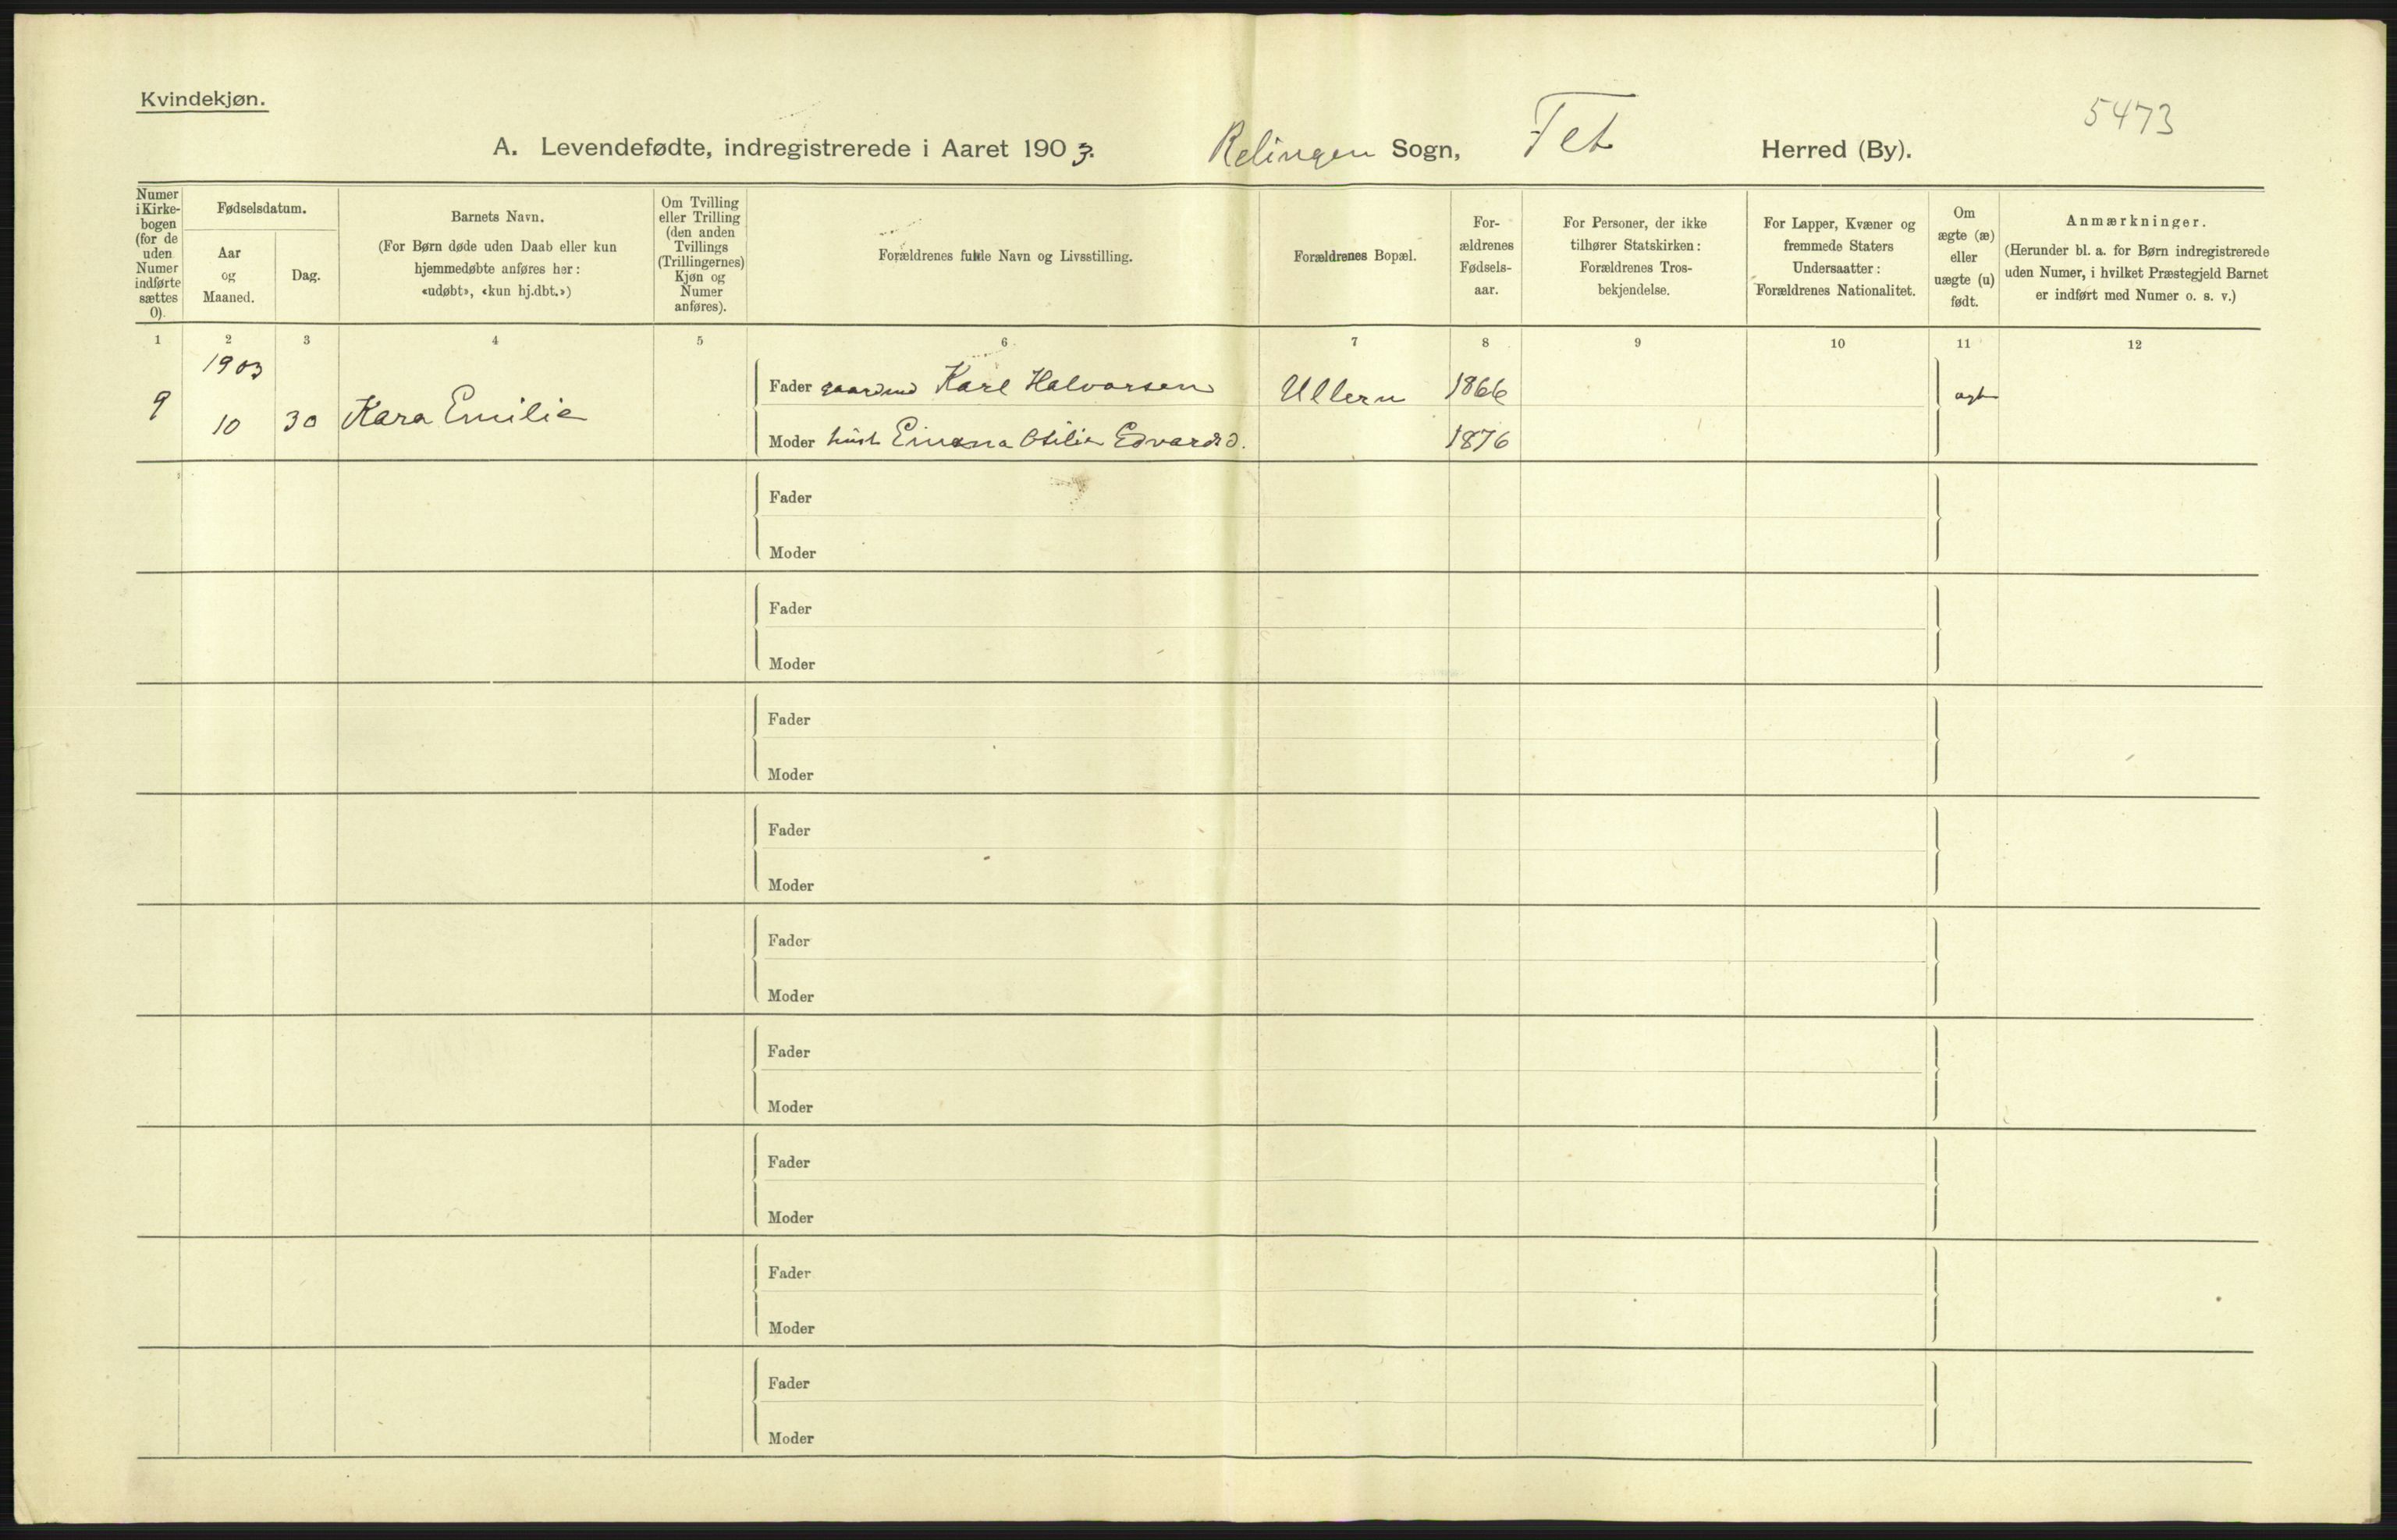 Kvindekjøn.
5473
A. Levendefødte, indregistrerede i Aaret 1903. Relingen Sogn, Fet Herred (By).
Numer i Kirkebogen (for de uden Numer indførte sættes 0).
Fødselsdatum.
Aar og Maaned.
Dag.
Barnets Navn.
(For Børn døde uden Daab eller kun hjemmedøbte anføres her: «udøbt», «kun hj.dbt.»)
Om Tvilling eller Trilling (den anden Tvillings (Trillingernes) Kjøn og Numer anføres).
Forældrenes fulde Navn og Livsstilling.
Forældrenes Bopæl.
For-ældrenes Fødsels-aar.
For Personer, der ikke tilhører Statskirken: Forældrenes Tros-bekjendelse.
For Lapper, Kvæner og fremmede Staters Undersaatter: Forældrenes Nationalitet.
Om ægte (æ) eller uægte (u) født.
Anmærkninger.
(Herunder bl. a. for Børn indregistrerede uden Numer, i hvilket Præstegjeld Barnet er indført med Numer o. s. v.)
1 2 3 4 5 6 7 8 9 10 11 12
1903
Fader gaardmd Karl Halvorsen Ullern 1866
9 10 30 Kara Emilie ægte
Moder hust Emma Otilie Edvardsd. 1876
Fader
Moder
Fader
Moder
Fader
Moder
Fader
Moder
Fader
Moder
Fader
Moder
Fader
Moder
Fader
Moder
Fader
Moder